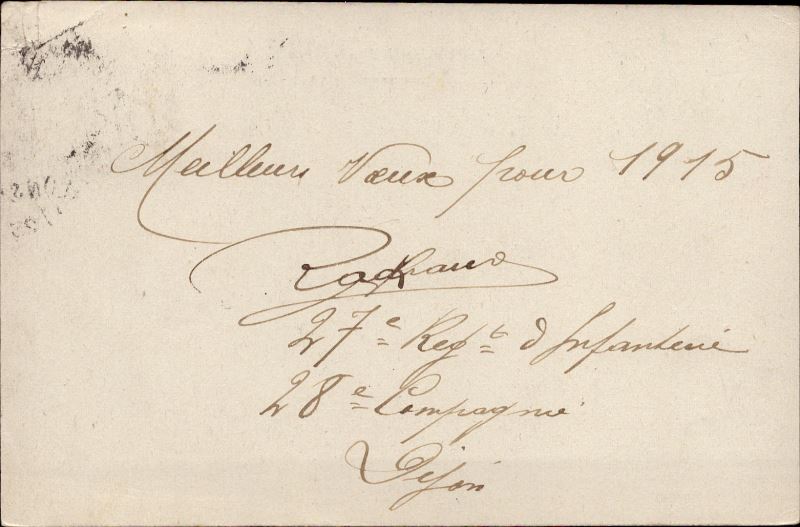 Meilleurs Vœux pour 1915
27e Regt d'Infanterie
28e Compagnie
Dijon